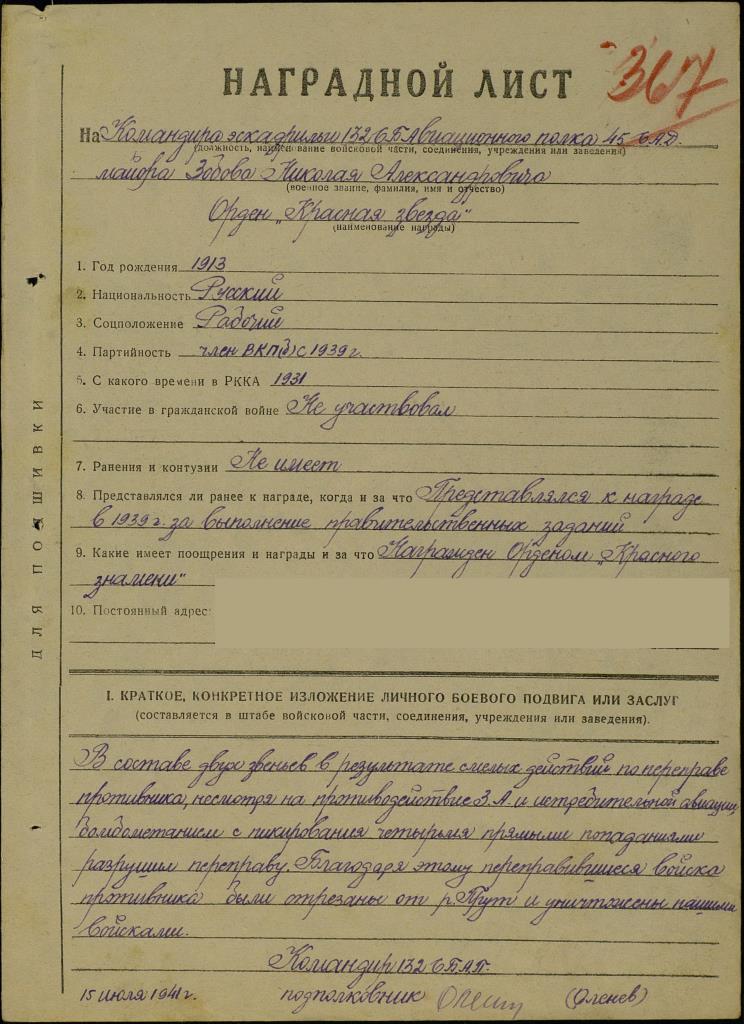 367
НАГРАДНОЙ ЛИСТ
На Командира эскадрильи 132 СБ Авиационного полка 45 САД.
(должность, наименование войсковой части, соединения, учреждения или заведения)
майора Зобова Николая Александровича
(военное звание, фамилия, имя и отчество)
Орден „Красная звезда"
(наименование награды)
1. Год рождения 1913
2. Национальность Русский
3. Соцположение Рабочий
4. Партийность член ВКП(б) с 1939 г.
5. С какого времени в РККА 1931
6. Участие в гражданской войне Не участвовал
7. Ранения и контузии Не имеет
8. Представлялся ли ранее к награде, когда и за что Представлялся к награде
в 1939 г. за выполнение правительственных заданий
9. Какие имеет поощрения и награды и за что Награжден Орденом „Красного
знамени"
10. Постоянный адрес:
ДЛЯ ПОДШИВКИ
I. КРАТКОЕ, КОНКРЕТНОЕ ИЗЛОЖЕНИЕ ЛИЧНОГО БОЕВОГО ПОДВИГА ИЛИ ЗАСЛУГ
(составляется в штабе войсковой части, соединения, учреждения или заведения).
В составе двух звеньев в результате смелых действий по переправе
противника, несмотря на противодействие З.А и истребительной авиации,
бомбометанием с пикирования четырьмя прямыми попаданиями
разрушил переправу. Благодаря этому переправившиеся войска
противника были отрезаны от р. Прут и уничтожены нашими
войсками.
Командир 132 СБАП.
15 июля 1941 г. подполковник (Оленев)